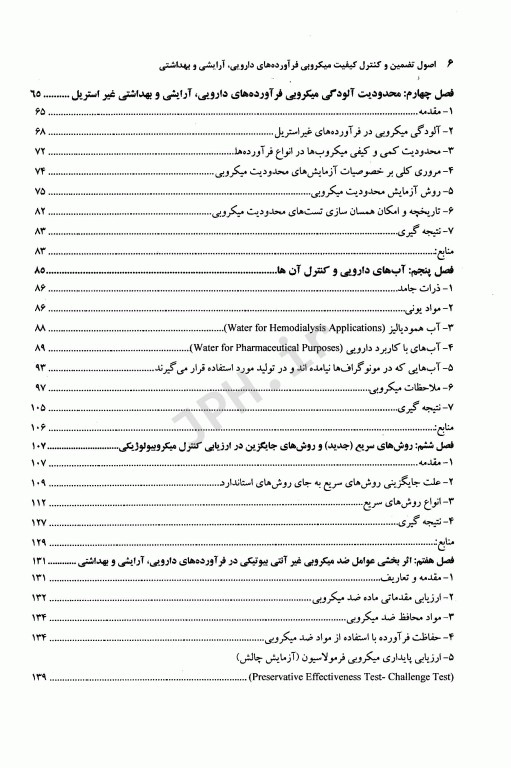 ۶ اصول تضمین و کنترل کیفیت میکروبی فرآورده‌های دارویی، آرایشی و بهداشتی
فصل چهارم: محدودیت آلودگی میکروبی فرآورده‌های دارویی، آرایشی و بهداشتی غیر استریل .......... ۶۵
۱- مقدمه .......... ۶۵
۲- آلودگی میکروبی در فرآورده‌های غیراستریل .......... ۶۸
۳- محدودیت کمی و کیفی میکروب‌ها در انواع فرآورده‌ها .......... ۷۲
۴- مروری کلی بر خصوصیات آزمایش‌های محدودیت میکروبی .......... ۷۴
۵- روش آزمایش محدودیت میکروبی .......... ۷۵
۶- تاریخچه و امکان همسان سازی تست‌های محدودیت میکروبی .......... ۸۲
۷- نتیجه گیری .......... ۸۳
منابع: .......... ۸۳
فصل پنجم: آب‌های دارویی و کنترل آن ها .......... ۸۵
۱- ذرات جامد .......... ۸۶
۲- مواد یونی .......... ۸۶
۳- آب همودیالیز (Water for Hemodialysis Applications) .......... ۸۸
۴- آب‌های با کاربرد دارویی (Water for Pharmaceutical Purposes) .......... ۸۹
۵- آب‌هایی که در مونوگراف‌ها نیامده اند و در تولید مورد استفاده قرار می‌گیرند .......... ۹۳
۶- ملاحظات میکروبی .......... ۹۷
۷- نتیجه گیری .......... ۱۰۵
منابع: .......... ۱۰۶
فصل ششم: روش‌های سریع (جدید) و روش‌های جایگزین در ارزیابی کنترل میکروبیولوژیکی .......... ۱۰۷
۱- مقدمه .......... ۱۰۷
۲- علت جایگزینی روش‌های سریع به جای روش‌های استاندارد .......... ۱۰۹
۳- انواع روش‌های سریع .......... ۱۱۲
۴- نتیجه گیری .......... ۱۲۷
منابع: .......... ۱۲۹
فصل هفتم: اثر بخشی عوامل ضد میکروبی غیر آنتی بیوتیکی در فرآورده‌های دارویی، آرایشی و بهداشتی .......... ۱۳۱
۱- مقدمه و تعاریف .......... ۱۳۱
۲- ارزیابی مقدماتی ماده ضد میکروبی .......... ۱۳۲
۳- مواد محافظ ضد میکروبی .......... ۱۳۴
۴- حفاظت فرآورده با استفاده از مواد ضد میکروبی .......... ۱۳۴
۵- ارزیابی پایداری میکروبی فرمولاسیون (آزمایش چالش)
(Preservative Effectiveness Test- Challenge Test) .......... ۱۳۹
JPH.ir